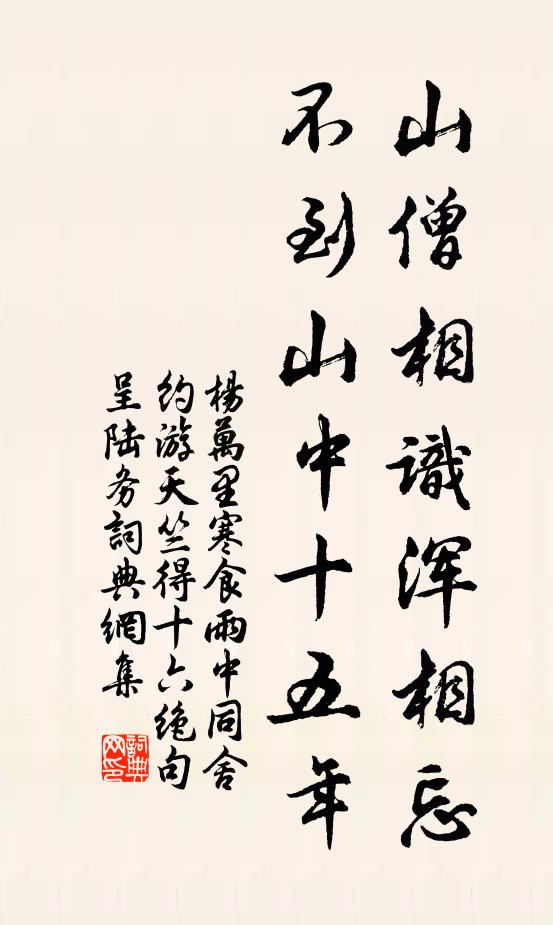 山僧相識浑相忘
不到山中十五年
楊萬里寒食雨中同舍
约游天竺得十六绝句
呈陆务詞典網集
詞典
网印